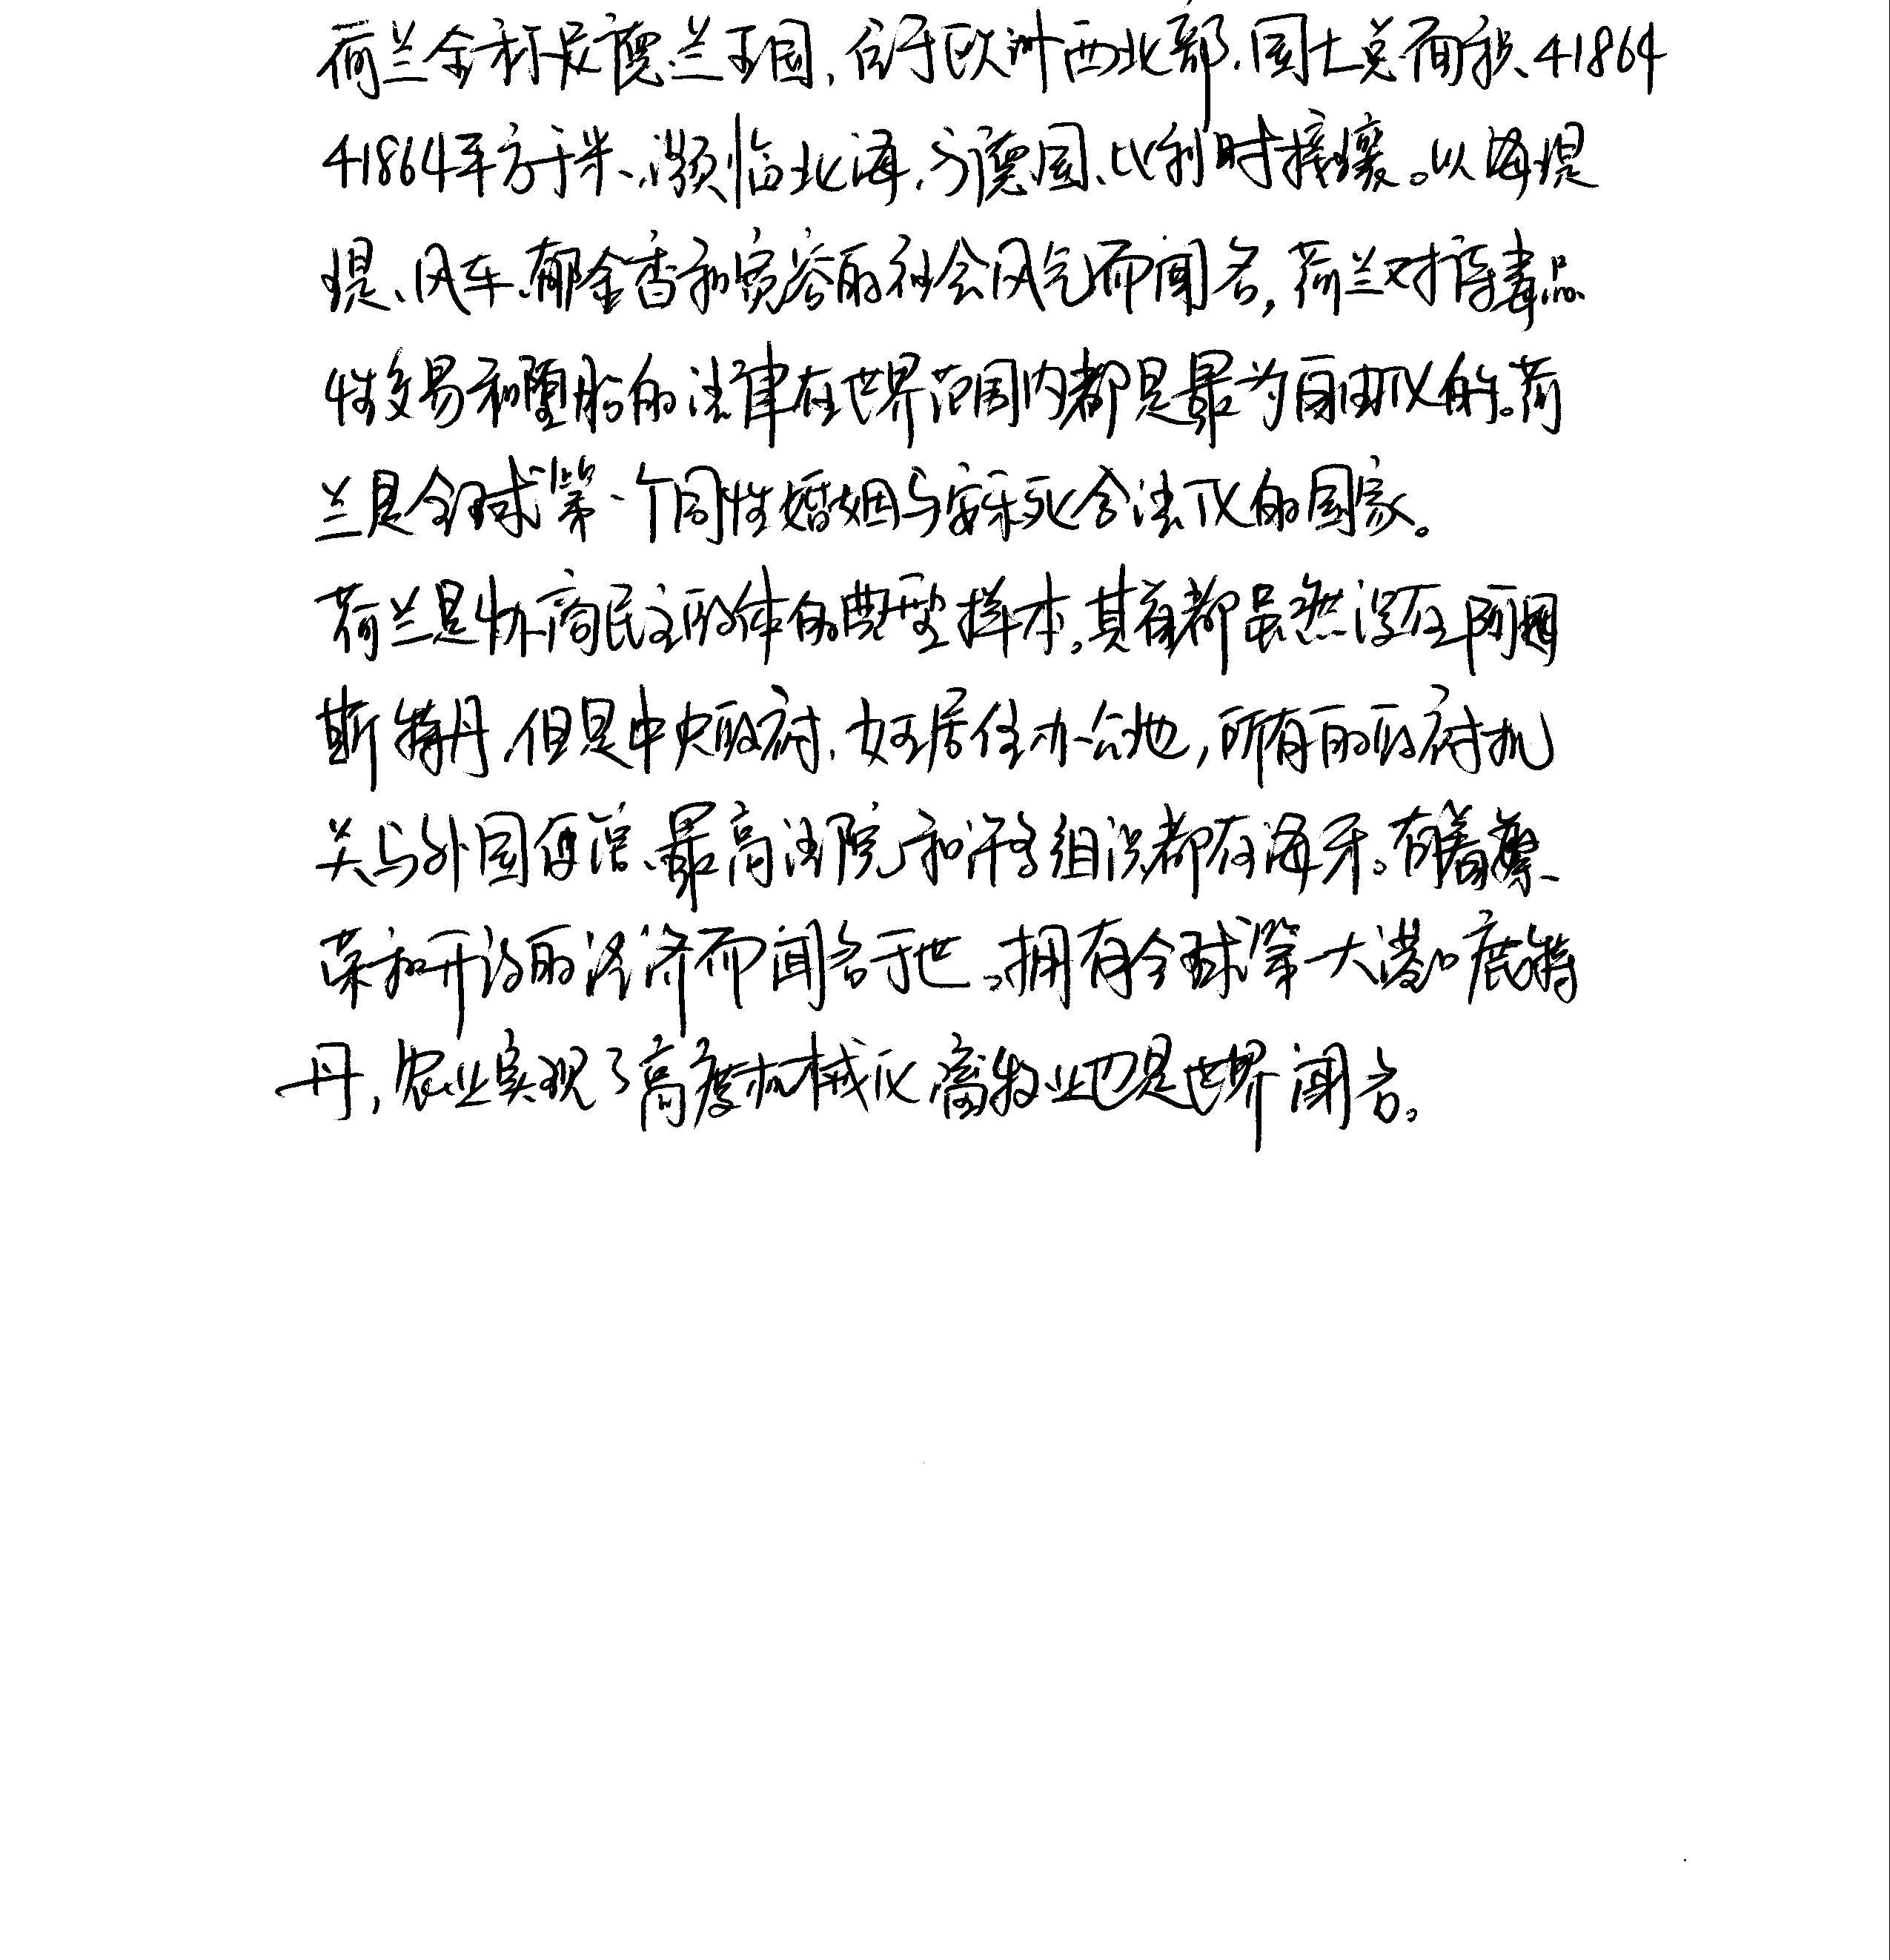 荷兰全称是荷兰王国,位于欧洲西北部,国土总面积41864
41864平方千米,濒临北海,与德国、比利时接壤。以海堤
堤、风车、郁金香和宽容的社会风气而闻名,荷兰对待毒品
性交易和堕胎的法律在世界范围内都是最为自由化的。荷
兰是全球第一个同性婚姻与安乐死合法化的国家。
荷兰是协商民主政体的典型样本,其首都虽然设在阿姆
斯特丹,但是中央政府,女王居住办公地,所有的政府机
关与外国使馆、最高法院和许多组织都在海牙。有着繁
荣和开放的经济而闻名于世。拥有全球第一大港口鹿特
丹,农业实现了高度机械化,畜牧业也是世界闻名。